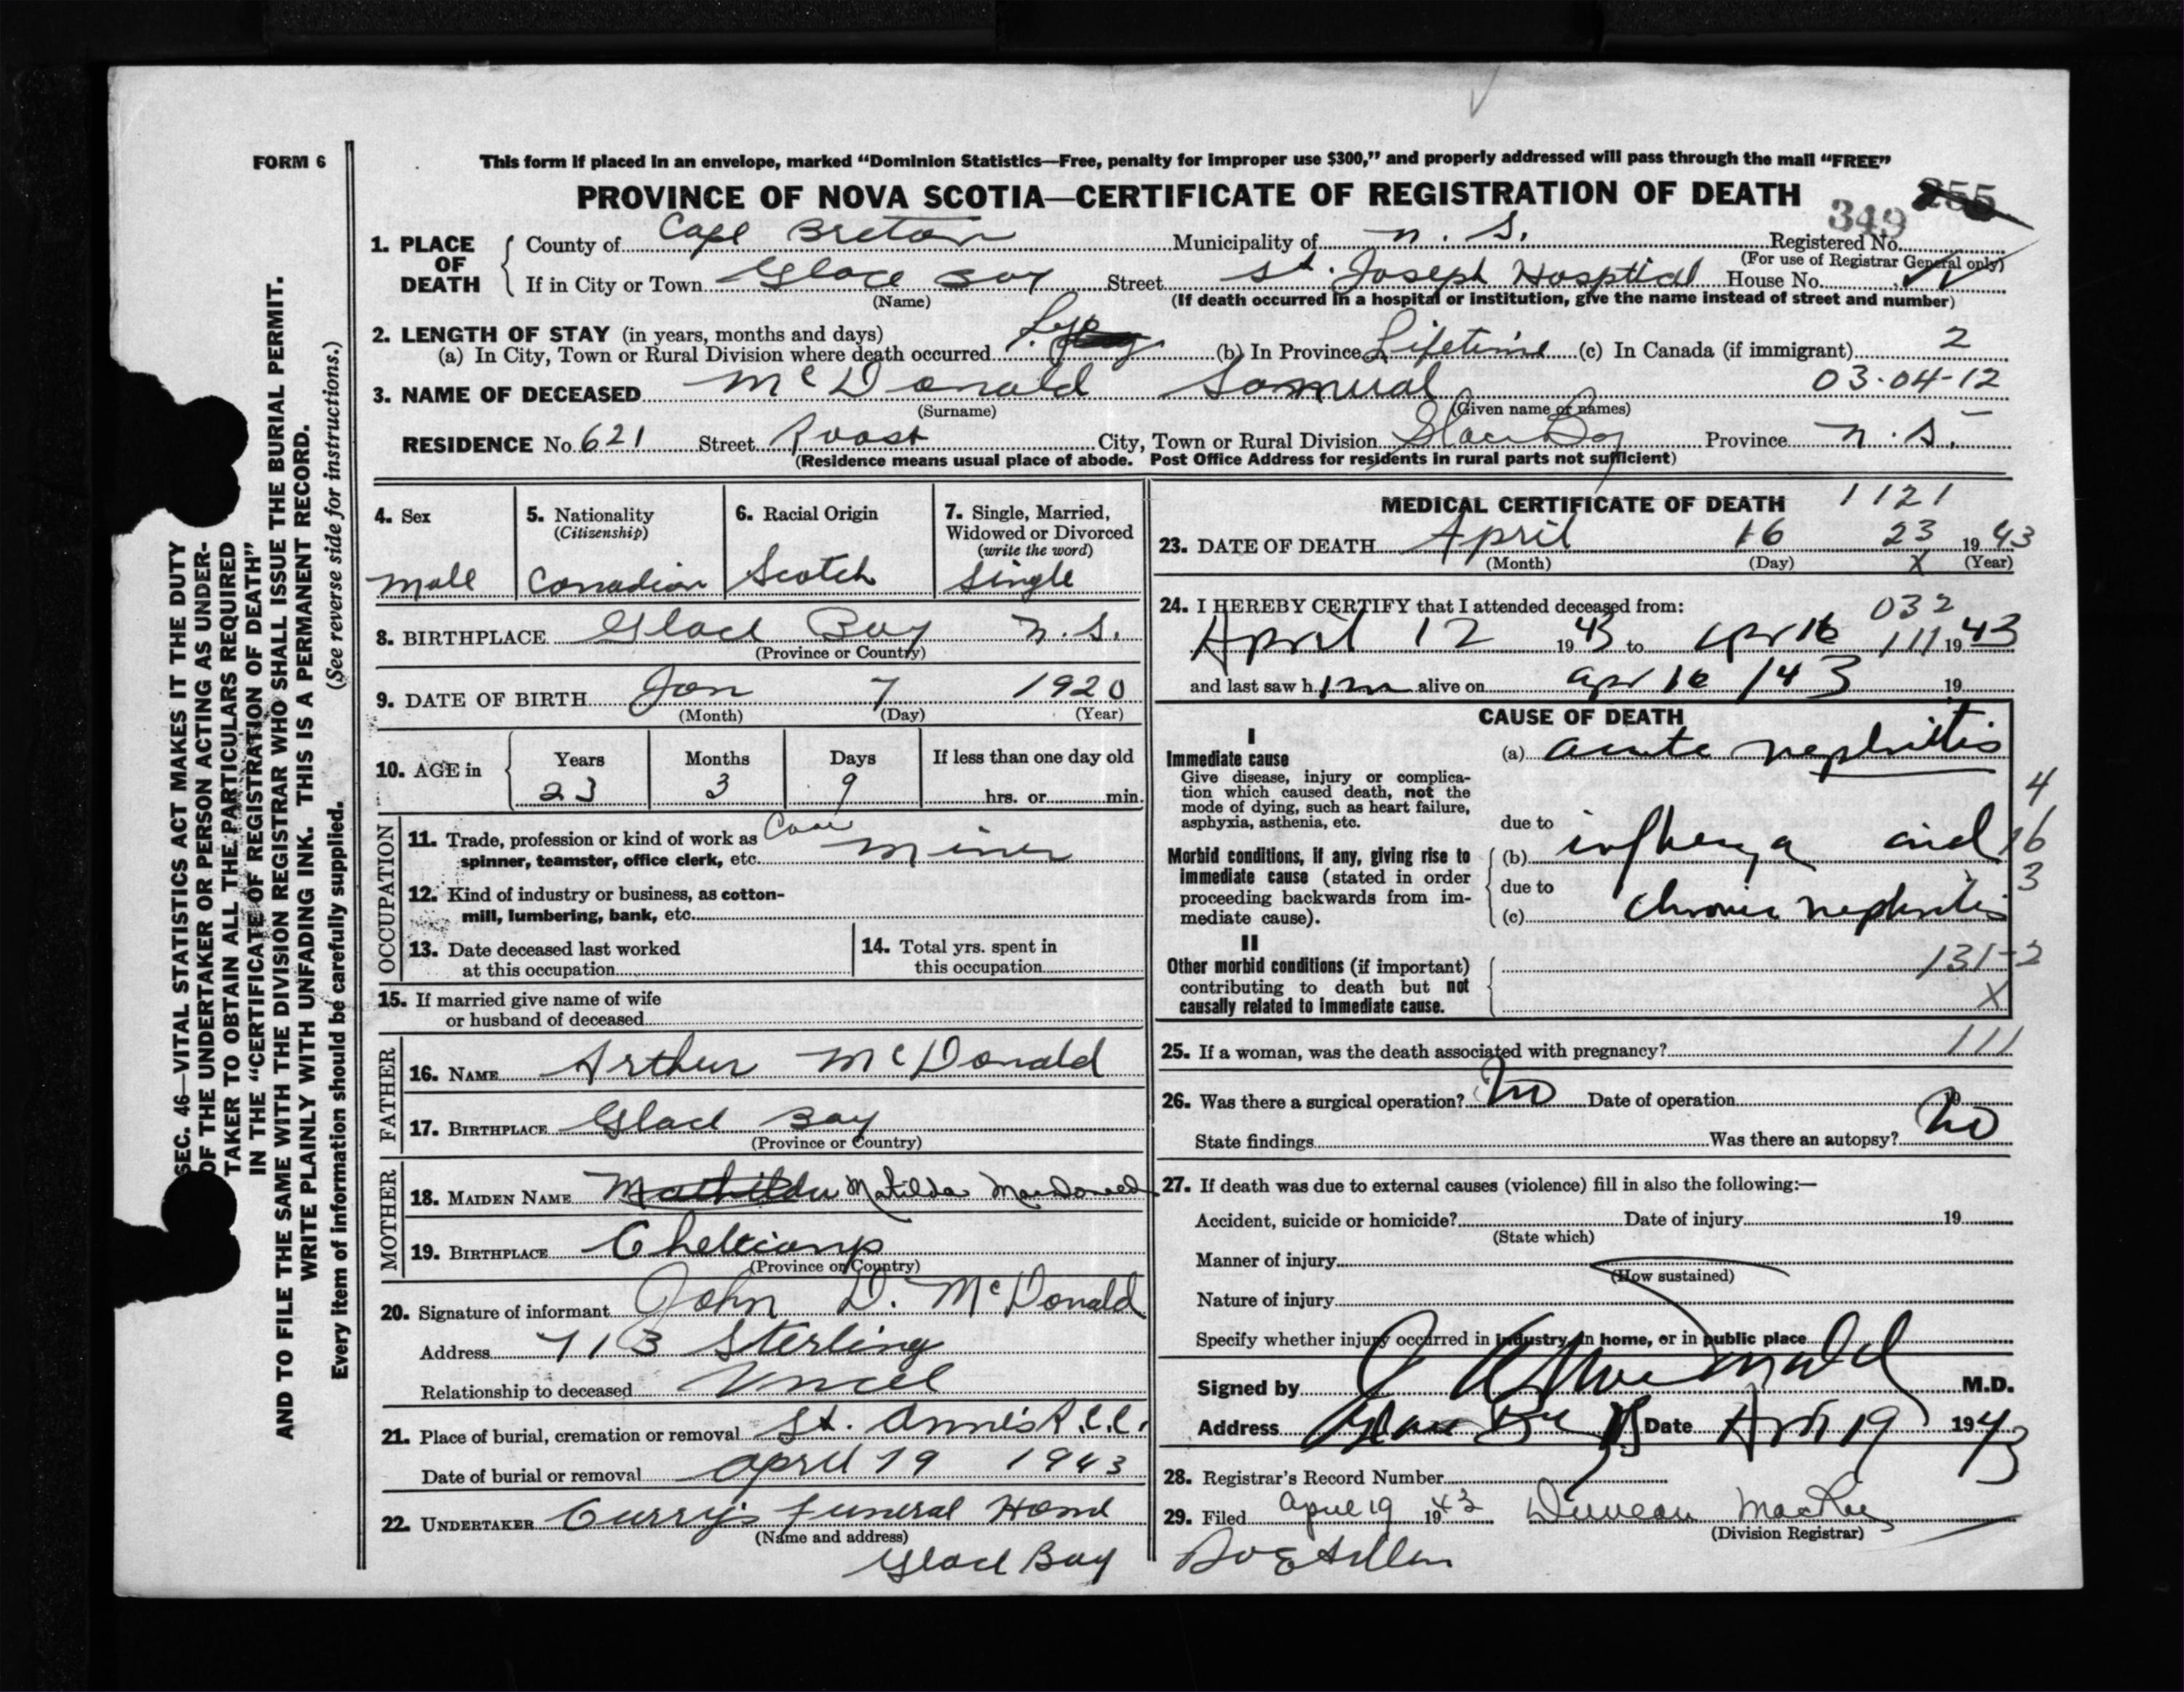 FORM 6
This form if placed in an envelope, marked “Dominion Statistics—Free, penalty for improper use $300,” and properly addressed will pass through the mail “FREE”
PROVINCE OF NOVA SCOTIA—CERTIFICATE OF REGISTRATION OF DEATH
349 255
1. PLACE OF DEATH
County of Cape Breton Municipality of N. S. Registered No.
(For use of Registrar General only)
If in City or Town Glace Bay Street St. Joseph Hosptial House No.
(Name) (If death occurred in a hospital or institution, give the name instead of street and number)
2. LENGTH OF STAY (in years, months and days)
(a) In City, Town or Rural Division where death occurred Life (b) In Province Lifetime (c) In Canada (if immigrant) 2
03-04-12
3. NAME OF DECEASED McDonald Samual
(Surname) (Given name or names)
RESIDENCE No. 621 Street City, Town or Rural Division Glace Bay Province N. S.
(Residence means usual place of abode. Post Office Address for residents in rural parts not sufficient)
4. Sex 5. Nationality (Citizenship) 6. Racial Origin 7. Single, Married, Widowed or Divorced (write the word)
Male Canadian Scotch Single
8. BIRTHPLACE Glace Bay N. S.
(Province or Country)
9. DATE OF BIRTH Jan 7 1920
(Month) (Day) (Year)
10. AGE in Years Months Days If less than one day old
23 3 9 hrs. or min.
OCCUPATION
11. Trade, profession or kind of work as spinner, teamster, office clerk, etc. Coal Miner
12. Kind of industry or business, as cotton-
mill, lumbering, bank, etc.
13. Date deceased last worked at this occupation
14. Total yrs. spent in this occupation
15. If married give name of wife
or husband of deceased
FATHER
16. NAME Arthur McDonald
17. BIRTHPLACE Glace Bay
(Province or Country)
MOTHER
18. MAIDEN NAME Mathilda Matilda MacDonald
19. BIRTHPLACE Cheticamp
(Province or Country)
20. Signature of informant John D. McDonald
Address 713 Sterling
Relationship to deceased Uncel
21. Place of burial, cremation or removal St. Anne's R.C.C.
Date of burial or removal April 19 1943
22. UNDERTAKER Curry's Funeral Home
(Name and address)
Glace Bay
MEDICAL CERTIFICATE OF DEATH 1121
23. DATE OF DEATH April 16 23 1943
(Month) (Day) X (Year)
24. I HEREBY CERTIFY that I attended deceased from: 032
April 12 1943 to Apr 16 111 1943
and last saw him alive on Apr 16 / 43 19
CAUSE OF DEATH
I
Immediate cause (a) acute nephritis
Give disease, injury or complica-
tion which caused death, not the
mode of dying, such as heart failure,
asphyxia, asthenia, etc.
4
16
3
due to
Morbid conditions, if any, giving rise to (b) influenza and
immediate cause (stated in order due to
proceeding backwards from im-
mediate cause). (c) chronic nephritis
II
Other morbid conditions (if important) 131-2
contributing to death but not
causally related to immediate cause. X
25. If a woman, was the death associated with pregnancy? 111
26. Was there a surgical operation? No Date of operation 19
State findings Was there an autopsy? No
27. If death was due to external causes (violence) fill in also the following:—
Accident, suicide or homicide? Date of injury 19
(State which)
Manner of injury
(How sustained)
Nature of injury
Specify whether injury occurred in industry, in home, or in public place
Signed by M.D.
Address Glace Bay NS Date April 19 1943
28. Registrar's Record Number
29. Filed April 19 1943 Duncan
(Division Registrar)
SEC. 46—VITAL STATISTICS ACT MAKES IT THE DUTY
OF THE UNDERTAKER OR PERSON ACTING AS UNDER-
TAKER TO OBTAIN ALL THE PARTICULARS REQUIRED
IN THE “CERTIFICATE OF REGISTRATION OF DEATH”
AND TO FILE THE SAME WITH THE DIVISION REGISTRAR WHO SHALL ISSUE THE BURIAL PERMIT.
WRITE PLAINLY WITH UNFADING INK. THIS IS A PERMANENT RECORD.
Every item of information should be carefully supplied. (See reverse side for instructions.)